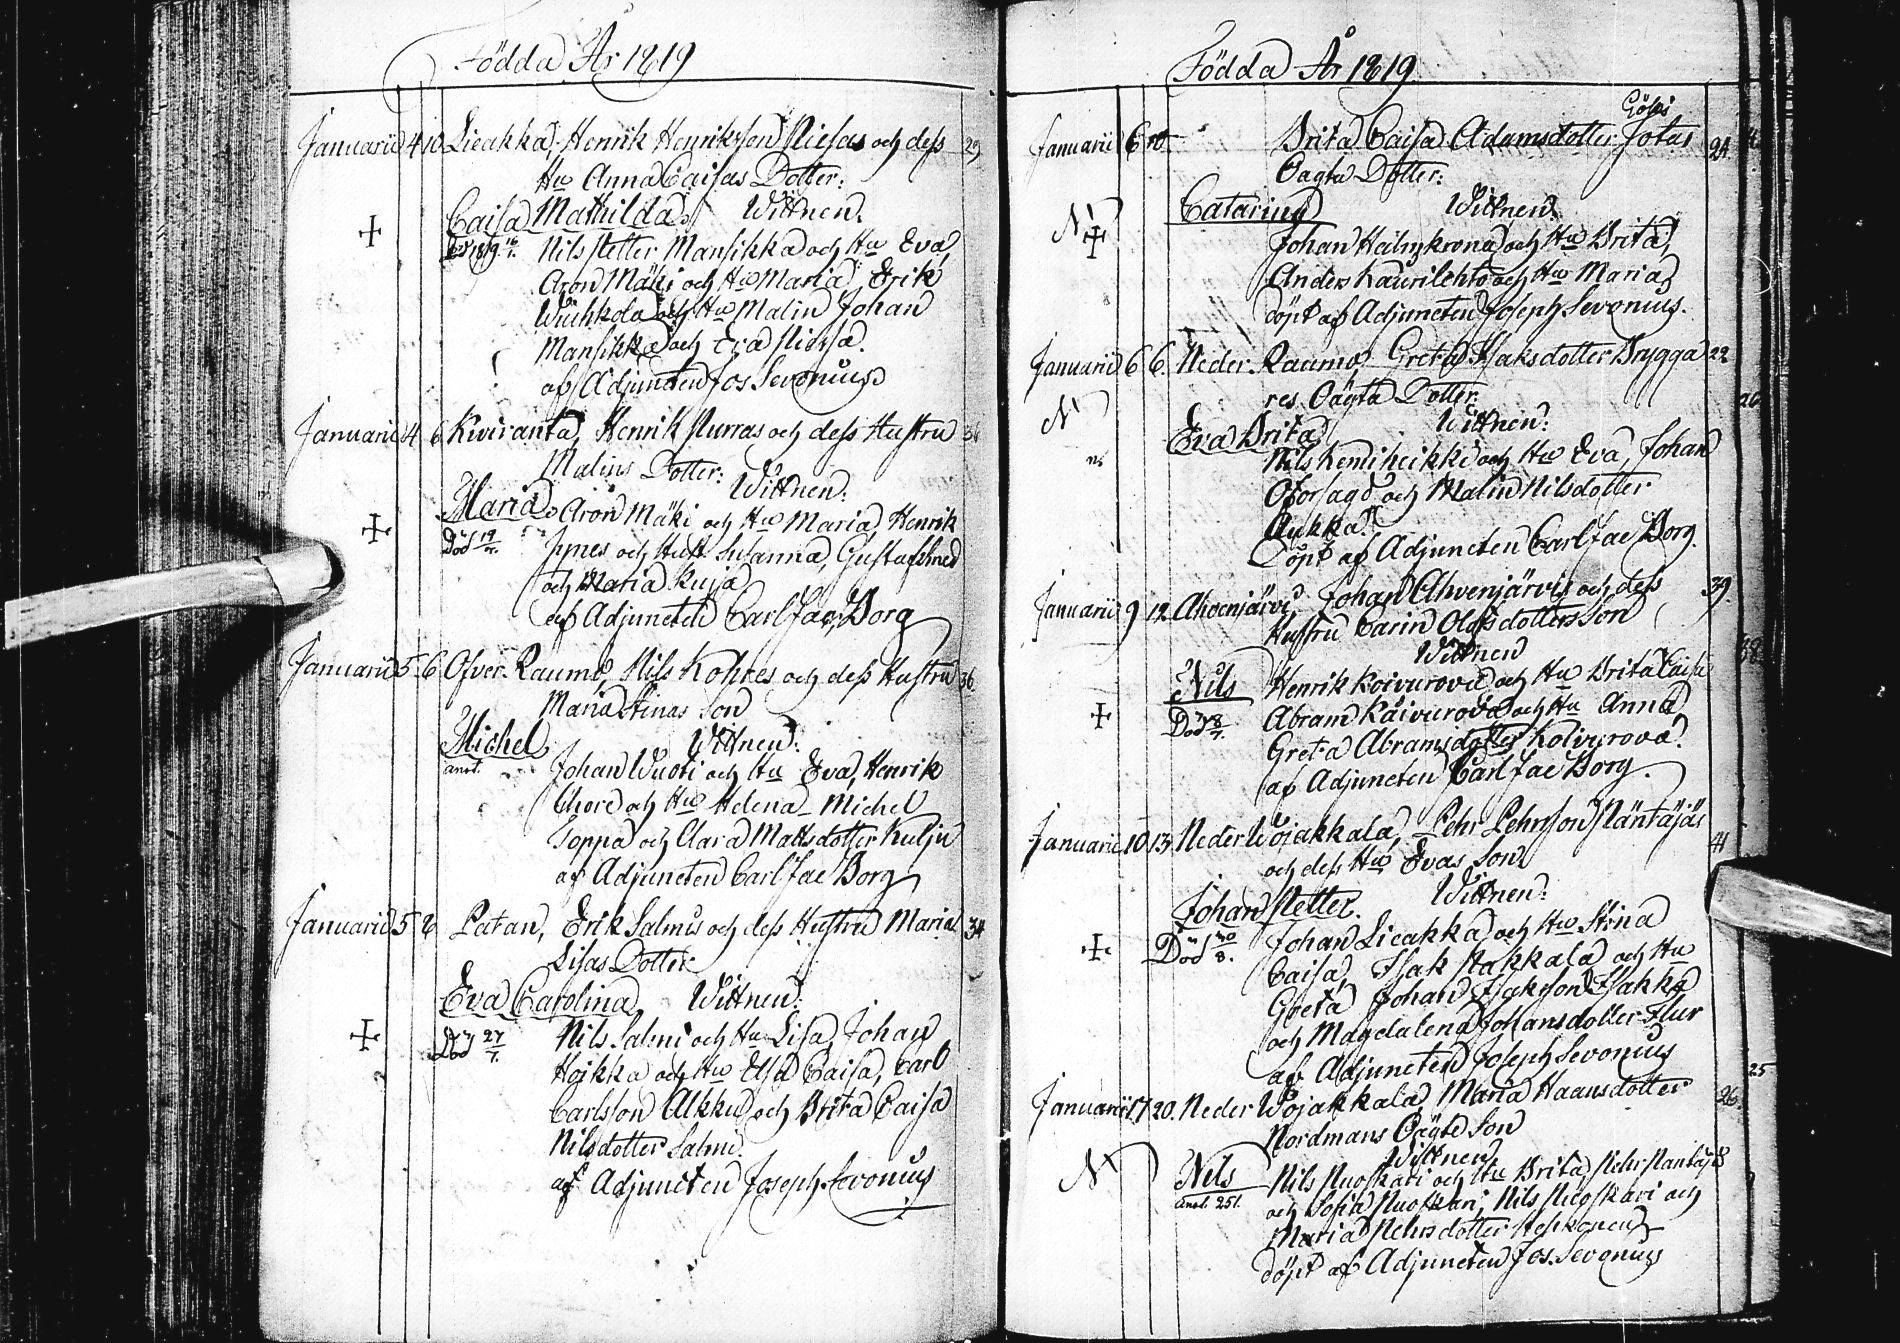 Födda År 1819
Januarii 4 10 Lieakka, Henrik Henriksson Niesas och dess 29
Hu Anna Caisas Dotter:
Caisa Mathilda Wittnen.
Nils Petter Mansikka och Hu Eva,
Aron Mäki och Hu Maria, Erik
och Hu Malin Johan
Mansikka och Eva Niesa.
af Adjuncten Jos Sevonius
Januarii 4 6 Kiviranta, Henrik Nurras och dess Hustru
Malins Dotter: Wittnen:
Maria, Aron Mäki och Hu Maria, Henrik
Död 19/7. och Hust Susanna, Gustaf Smed
och Maria Kuja
af Adjuncten Carl Jac Borg
Januarii 5 6 Öfver Raumo, Nils Kohres och dess Hustru 36
Maria Stinas Son
Michel, Wittnen:
anot. Johan Wuoti och Hu Eva, Henrik
och Hu Helena Michel
Poppa och Clara Mattsdotter Kulju
af Adjuncten Carl Jac Borg
Januarii 5 6 Laitan, Erik Salmis och dess Hustru Maria 34
Lisas Dotter
Eva Carolina, Wittnen:
Död 27/7. Nils Salmi och Hu Lisa, Johan
Hoikka och Hu Elsa Caisa, Carl
Carlsson Alkku och Brita Caisa
Nilsdotter Salmi.
af Adjuncten Joseph Sevonius
Födda År 1819
Januarii 6 10. Brita Caisa Adamsdotter Jotas 24
Oägta Dotter:
Catarina Wittnen.
N Johan Heilmkrona och Hu Brita,
Anders Kaurilehto och Hu Maria,
döpt af Adjuncten Joseph Sevonius.
Januarii 6 6. Neder Raumo Greta Isaksdotter Brygga 22
res. Oägta Dotter.
N Eva Brita Wittnen:
Nils Kenttiheikki och Hu Eva, Johan
Oforsagd och Malin Nilsdotter
Aukka
Döpt af Adjuncten Carl Jac Borg.
Januarii 9 12. Ahvenjärvi, Johan Ahvenjärvis och dess 39.
Hustru Carin Olofsdotters Son
Wittnen
Nils Henrik Koivurova och Hu Brita Caisa
Abram Koivurova och Hu Anna
Greta Abramsdotter Koivurova.
af Adjuncten Carl Jac Borg.
Januarii 10 13. Neder Wojakkala, Pehr Pehrsson Näntäjäs 41
och dess Hu Evas Son
Johan Petter. Wittnen:
Död 30/8. Johan Lieakka och Hu Stina
Caisa, Isak Nakkala och Hu
Greta Johan Isaksson Isakka
och Magdalena Johansdotter Flur
af Adjuncten Joseph Sevonius
25
Januarii 17 20. Neder Wojakkala Maria Hansdotter 26.
Nordmans Oägta Son
Wittnen
N Nils Nils Nuoskari och Hu Brita, Pehr Nantäjä
anot. 251. och Sofia Nuoskari, Nils Nuoskari och
Maria Pehrsdotter Peskonen
döpt af Adjuncten Jos. Sevonius